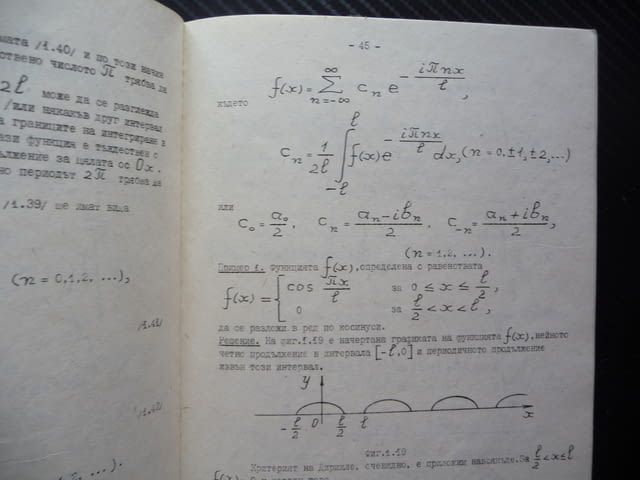 мата /1.40/ и по този начин
ствено числото π трябва да
2l може да се разглежда
/или някакъв друг интервал
а границите на интегриране в
ази функция е тъждествен с
дължение за цялата ос Ox.
но периодът 2π трябва да
/1.39/ ще имат вида
(n = 0,1,2, ...),
/1.41/
/1.42/
, ...).
- 45 -
f(x) = ∑_{n=-∞}^{∞} c_n e^{- iπnx/l},
където
c_n = 1/2l ∫_{-l}^{l} f(x) e^{- iπnx/l} dx, (n = 0, ±1, ±2, ...)
или
c_0 = a_0/2, c_n = (a_n - ib_n)/2, c_{-n} = (a_n + ib_n)/2,
(n = 1,2, ...).
Пример 1. Функцията f(x), определена с равенствата
f(x) = { cos πx/l за 0 ≤ x ≤ l/2,
0 за l/2 < x < l,
да се разложи в ред по косинуси.
Решение. На фиг.1.19 е начертана графиката на функцията f(x), нейното
четно продължение в интервала [-l,0] и периодичното продължение
извън този интервал.
y
-l/2 0 l/2 l x
Фиг.1.19
Критерият на Дирихле, очевидно, е приложим навсякъде. За l/2 < x ≤ l
f(x)